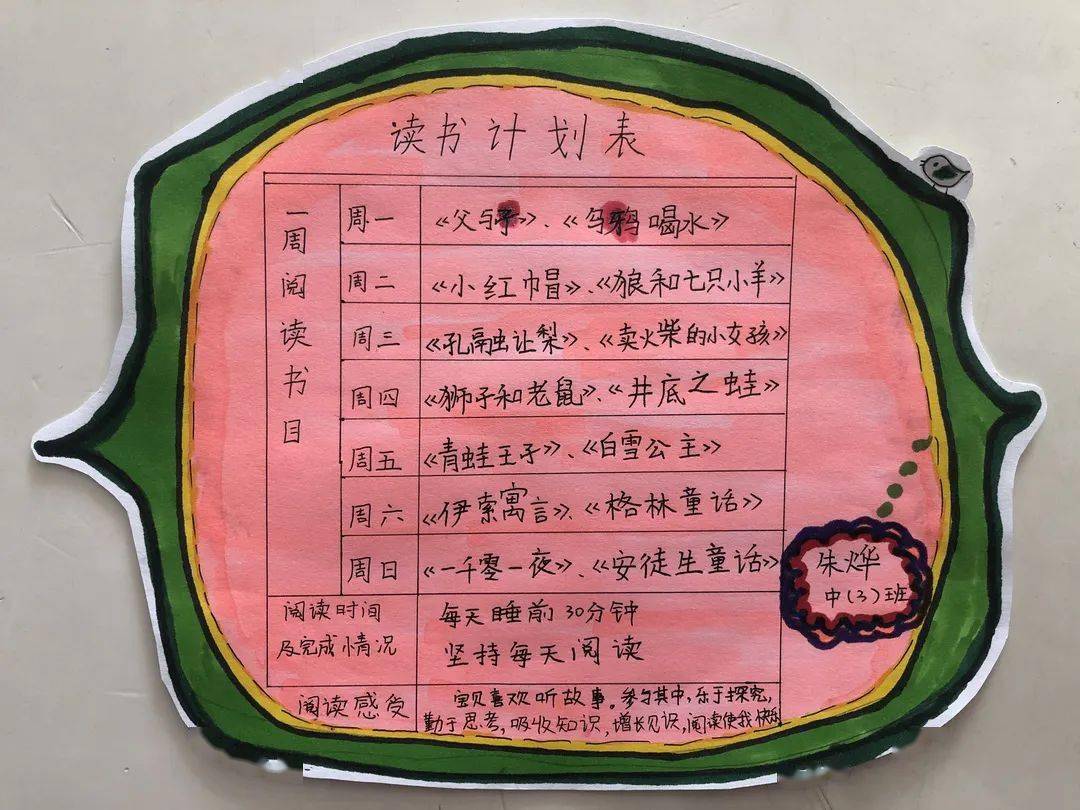 读书计划表
一周阅读书目
周一 《父与子》、《乌鸦喝水》
周二 《小红帽》、《狼和七只小羊》
周三 《孔融让梨》、《卖火柴的小女孩》
周四 《狮子和老鼠》、《井底之蛙》
周五 《青蛙王子》、《白雪公主》
周六 《伊索寓言》、《格林童话》
周日 《一千零一夜》、《安徒生童话》
朱烨
中(3)班
阅读时间
及完成情况
每天睡前30分钟
坚持每天阅读
阅读感受
宝贝喜欢听故事。参与其中,乐于探究,
勤于思考,吸收知识,增长见识,阅读使我快乐